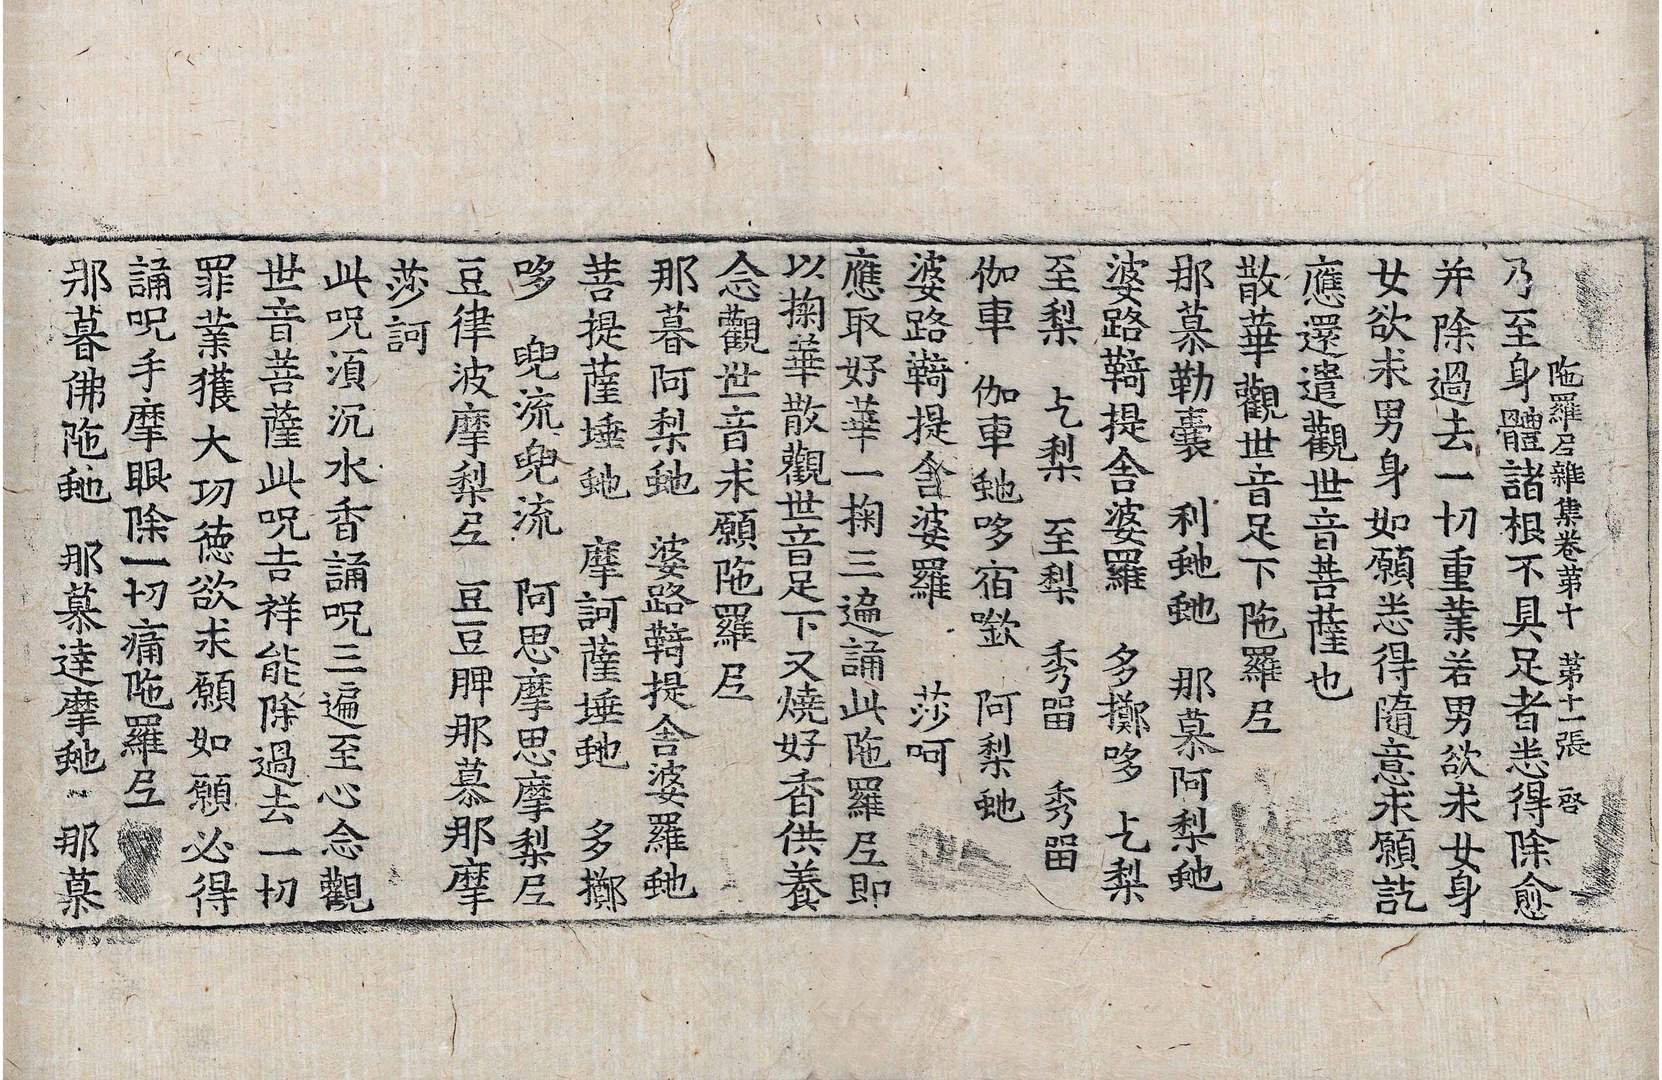 陁羅尼雜集卷第十　第十一張　啓
乃至身體諸根不具足者悉得除愈
并除過去一切重業若男欲求女身
女欲求男身如願悉得隨意求願訖
應還遣觀世音菩薩也
散華觀世音足下陁羅尼
那慕勒囊　利虵虵　那慕阿梨虵
婆路鞊提舍婆羅　多擲哆　乇梨
至梨　乇梨　至梨　秀留　秀留
伽車　伽車虵哆宿　阿梨虵
婆路鞊提舍婆羅　莎呵
應取好華一掬三遍誦此陁羅尼即
以掬華散觀世音足下又燒好香供養
念觀世音求願陁羅尼
那暮阿梨虵　婆路鞊提舍婆羅虵
菩提薩埵虵　摩訶薩埵虵　多擲
哆　兜流兜流　阿思摩思摩梨尼
豆律波摩梨尼　豆豆脾那慕那摩
莎訶
此呪湏沉水香誦呪三遍至心念觀
世音菩薩此呪吉祥能除過去一切
罪業獲大功德欲求願如願必得
誦呪手摩眼除一切痛陁羅尼
那暮佛陁虵　那慕達摩虵　那慕